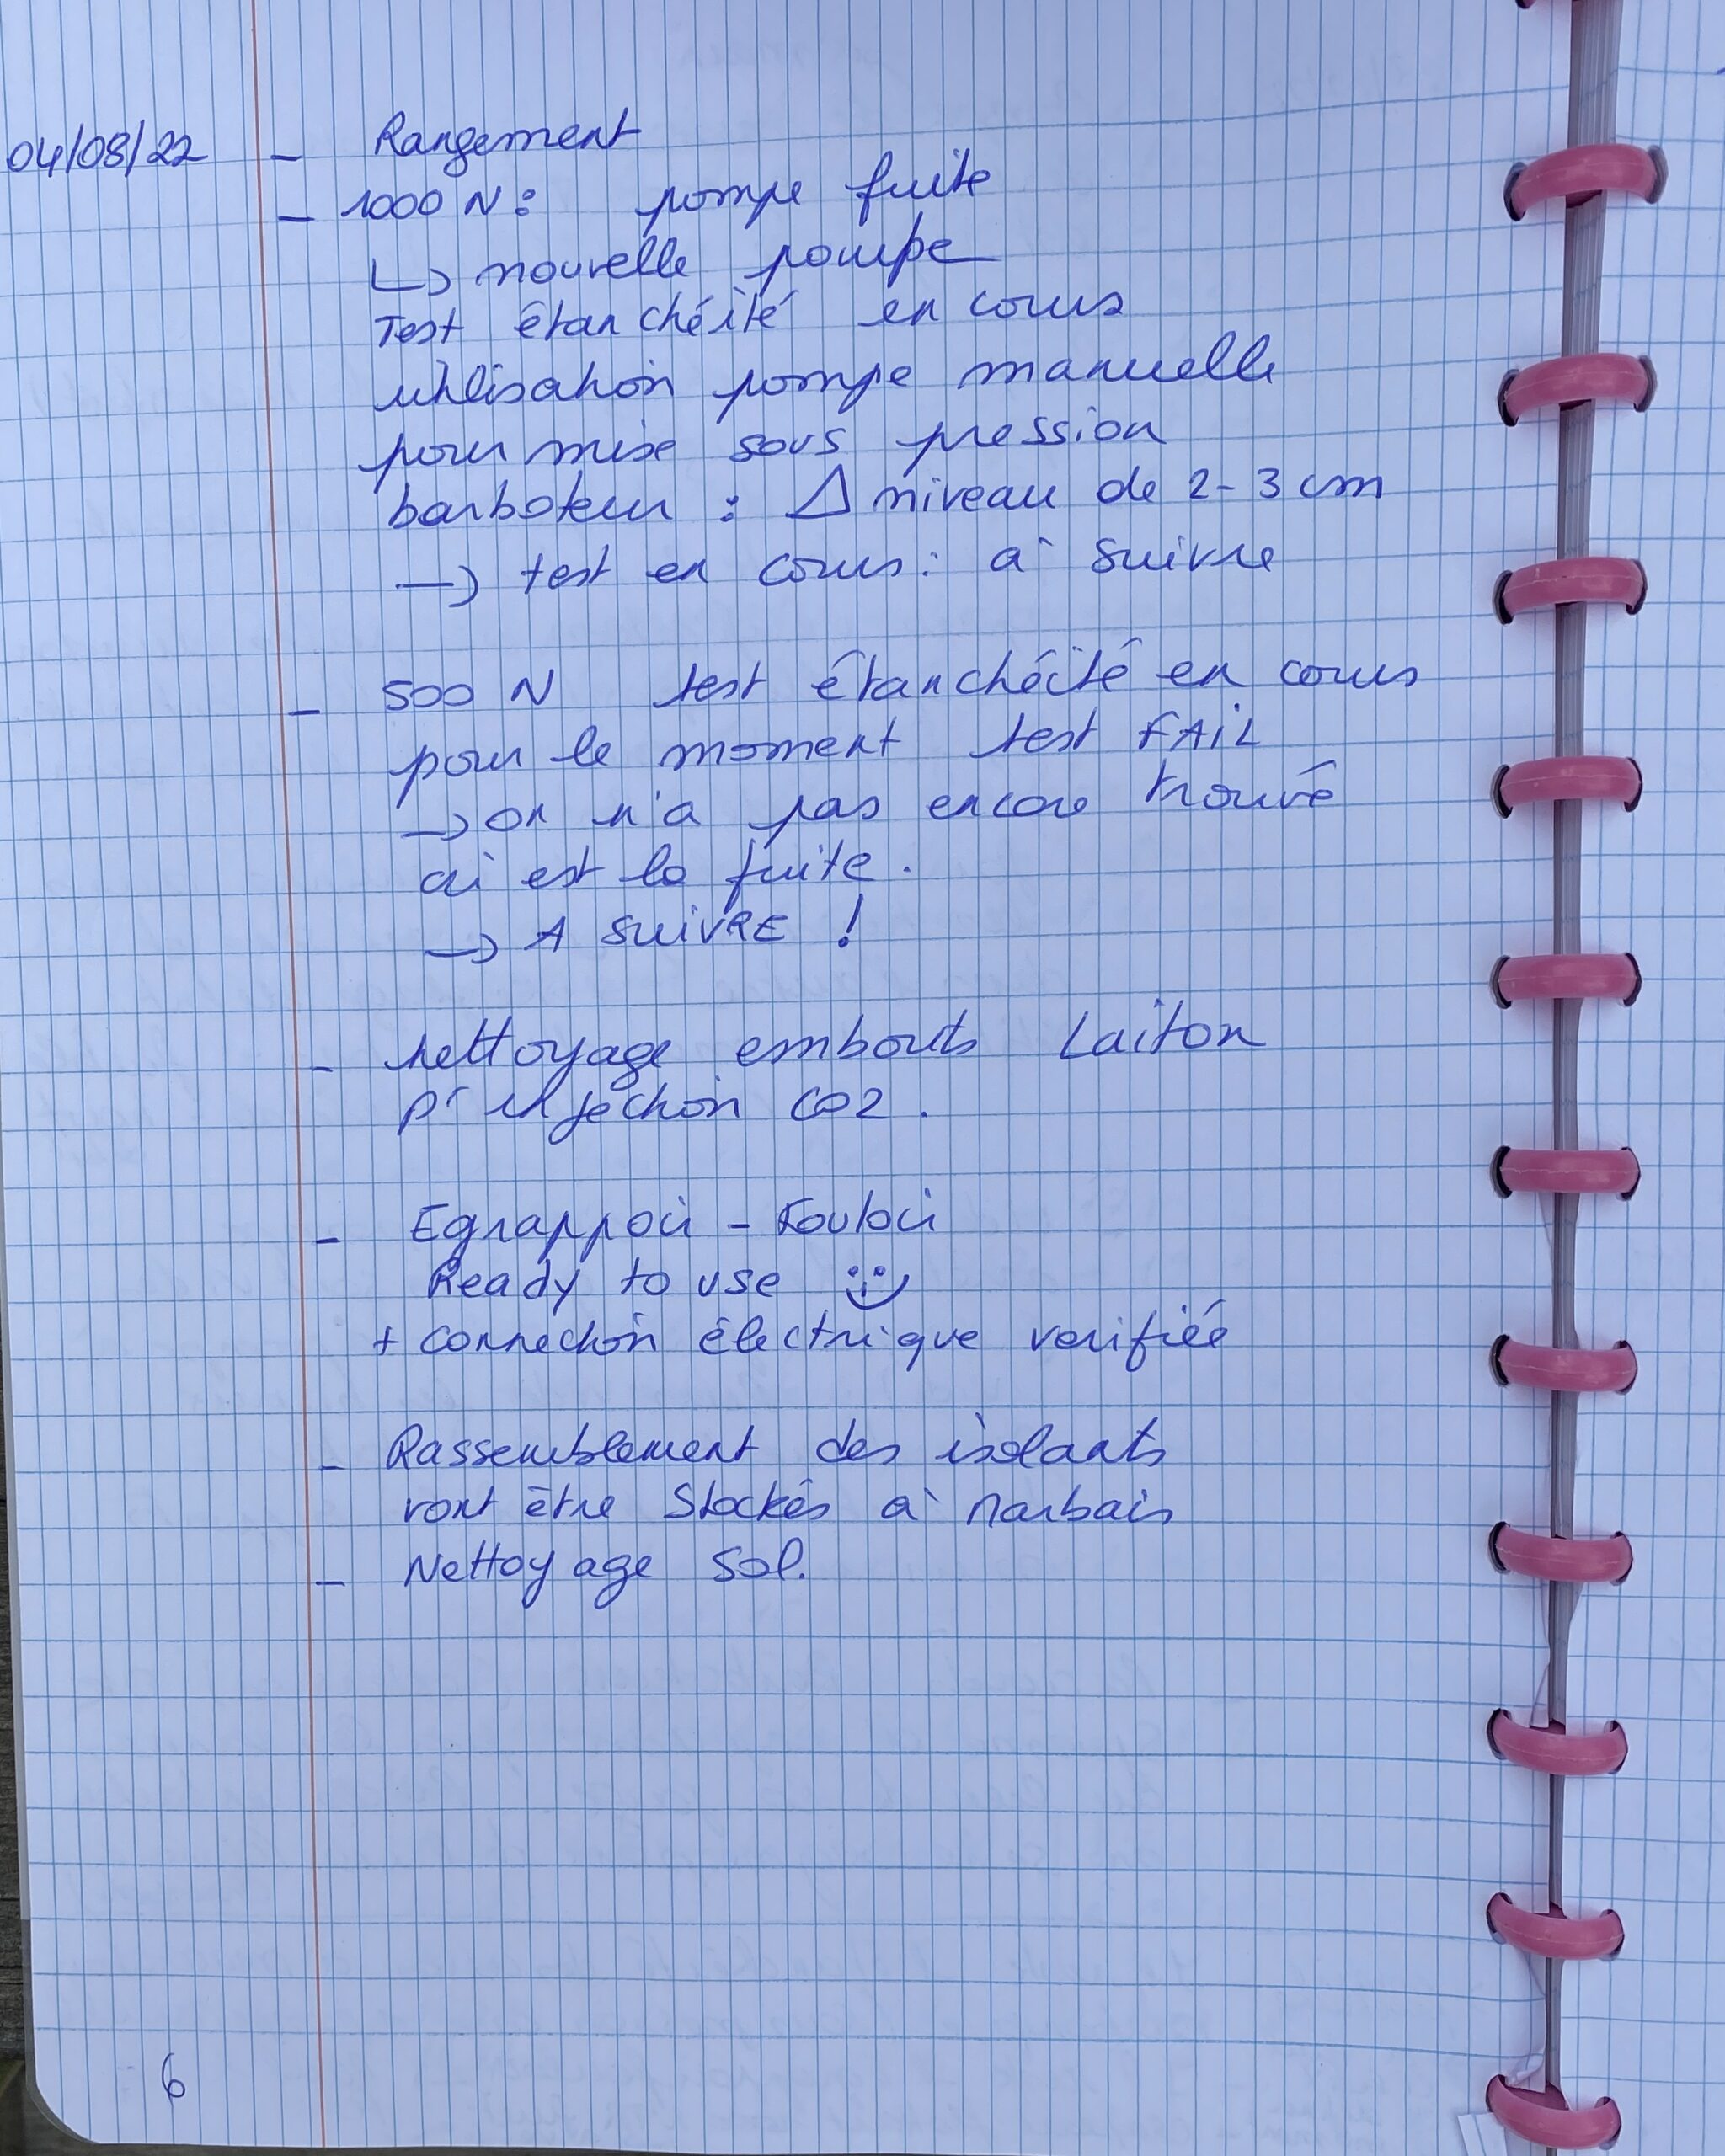 04/08/22 - Rangement
- 1000 N : pompe fuite
↳ nouvelle pompe
Test étanchéité en cours
utilisation pompe manuelle
pour mise sous pression
barboteur : Δ niveau de 2-3 cm
→ test en cours : à suivre
- 500 N test étanchéité en cours
pour le moment test FAIL
→ on n'a pas encore trouvé
où est la fuite.
→ A SUIVRE !
- Nettoyage embouts Laiton
pr injection CO2.
- Egrappoir - Fouloir
Ready to use :)
+ connection électrique verifiée
- Rassemblement des isolants
vont être stockés à Marbais
- Nettoyage sol.
6